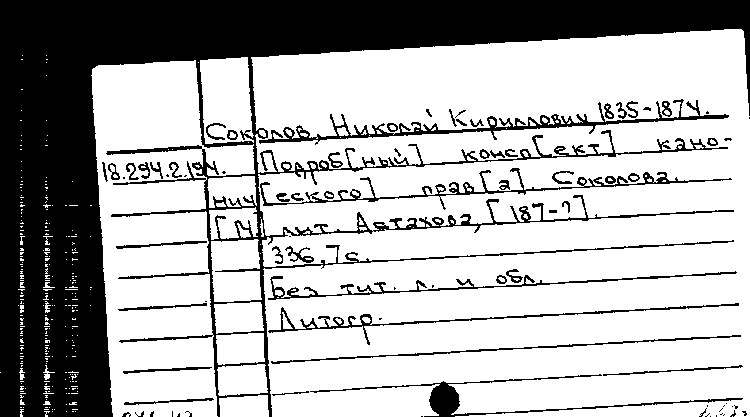 Соколов, Николай Кириллович, 1835-1874.
18.294.2.194. Подроб[ный] консп[ект] кано-
нич[еского] прав[а]. Соколова.
[М], лит. Астахова, [187-?].
336, 7 с.
Без тит. л. и обл.
Литогр.